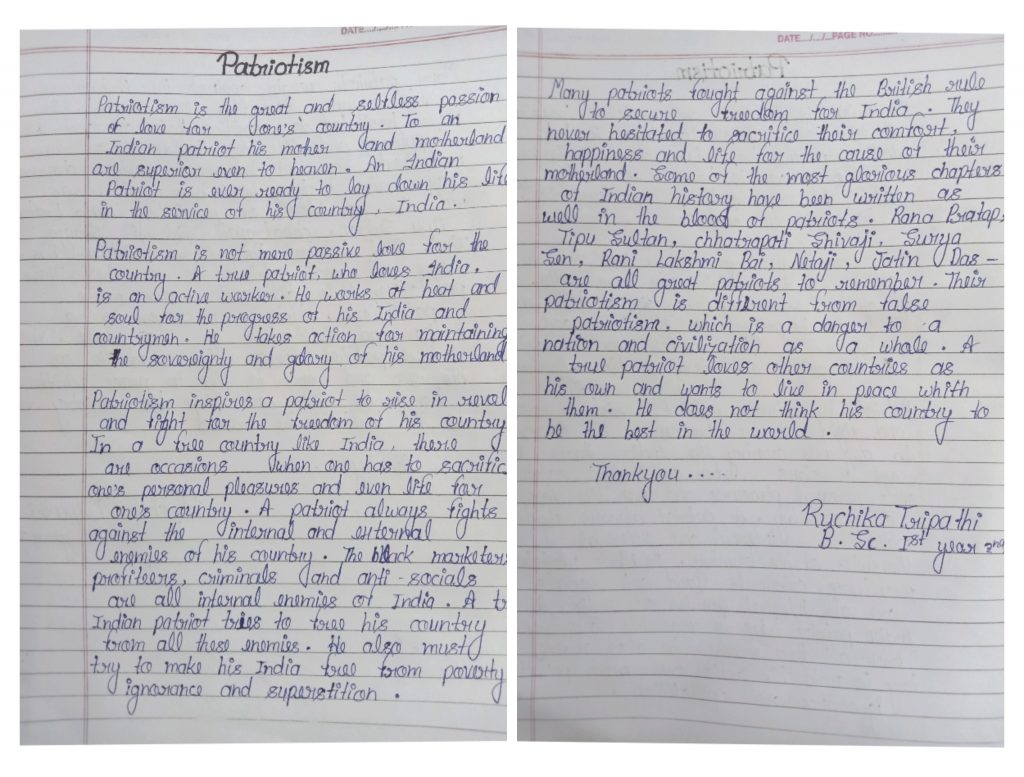 DATE
Patriotism
Patriotism is the great and selfless passion
of love for one's country. To an
Indian patriot his mother and motherland
are superior even to heaven. An Indian
Patriot is ever ready to lay down his life
in the service of his country, India.
Patriotism is not mere passive love for the
country. A true patriot, who loves India,
is an active worker. He works at heat and
soul for the progress of his India and
countrymen. He takes action for maintaining
the sovereignty and glory of his motherland
Patriotism inspires a patriot to rise in reval
and fight for the freedom of his country
In a free country like India, there
are occasions when one has to sacrific
one's personal pleasures and even life for
one's country. A patriot always fights
against the internal and external
enemies of his country. The black marketers
profiteers, criminals and anti-socials
are all internal enemies of India. A tr
Indian patriot tries to free his country
from all these enemies. He also must
try to make his India free from poverty
ignorance and superstition.
DATE../../.. PAGE NO......
Many patriots fought against the British rule
to secure freedom for India. They
never hesitated to sacrifice their comfort,
happiness and life for the cause of their
motherland. Some of the most glorious chapters
of Indian history have been written as
well in the blood of patriots. Rana Pratap,
Tipu Sultan, chhatrapati Shivaji, Surya
Sen, Rani Lakshmi Bai, Netaji, Jatin Das -
are all great patriots to remember. Their
patriotism is different from false
patriotism, which is a danger to a
nation and civilization as a whole. A
true patriot loves other countries as
his own and wants to live in peace whith
them. He does not think his country to
be the best in the world.
Thankyou ....
Ruchika Tripathi
B. Sc. Ist year